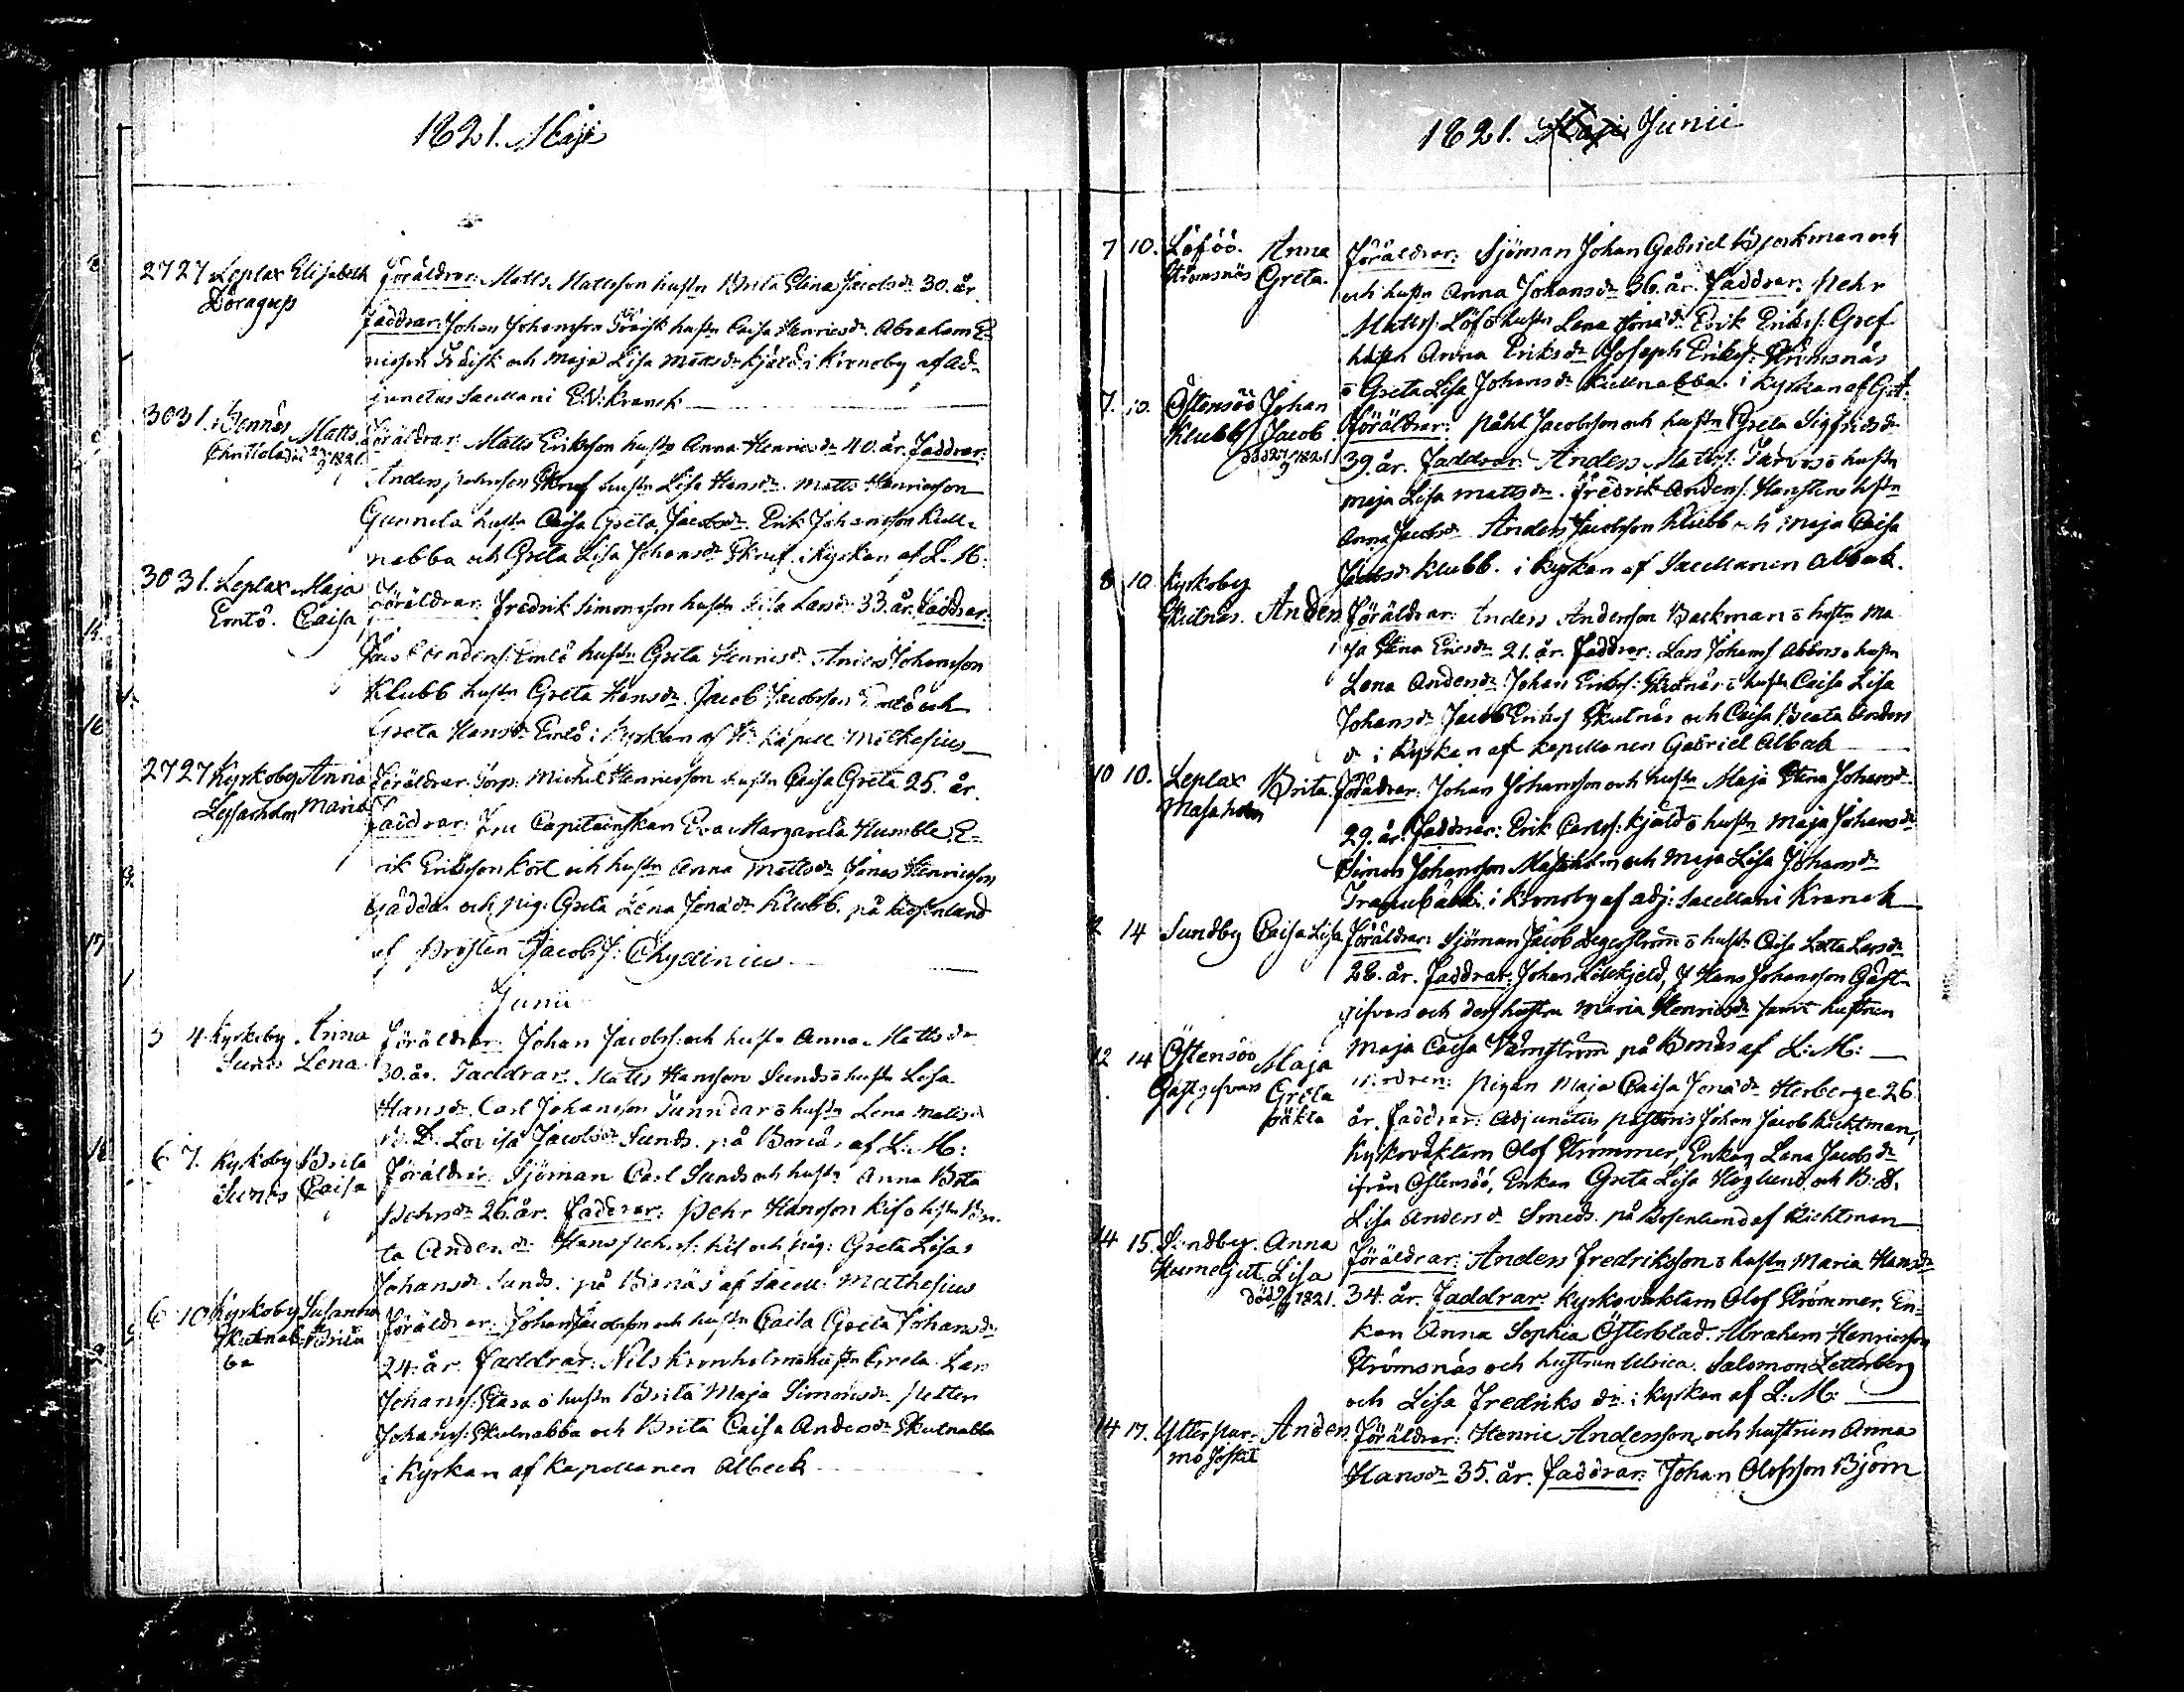 1821. Maji
27 27 Leplax Elisabeth Föräldrar: Matts Mattsson hustn Brita Elina Jacobsdr 30. år.
Faddrar: Johan Johansson hustn Caisa Henricsdr Abraham E-
ricsson och Maja Lisa Månsdr Kjäld i Kronoby af ad-
junctus Sacellani E.W: Kranck
30 31. Bennäs Matts Föräldrar: Matts Eriksson hustn Anna Henricsdr 40. år. Faddrar:
död 1821
Anders Johnsson Skruf hustn Lisa Hansdr. Matts Henricsson
Gunnela hustn Caisa Greta Jacobsdr. Erik Johansson Kull-
nabba och Greta Lisa Johansdr Skruf. i Kyrkan af L. M:
30 31. Leplax Maja Föräldrar: Fredrik Simonsson hustn Lisa Larsdr 33. år. Faddrar:
Emtö. Caisa
Emtö hustn Greta Henricsdr Anders Johansson
Klubb hustn Greta Hansdr. Jacob Jacobsson Emtö och
Greta Hansdr Emtö i Kyrkan af Hr Kapell: Mathesius
27 27 Kyrkoby Anna Föräldrar: Torp: Michel Henricsson hustn Caisa Greta 25. år.
Maria
Faddrar: Fru Capitainskan Eva Margareta Humble. E-
rik Eriksson Kort och hustn Anna Mattsdr Jonas Henricsson
Gädda och pig: Greta Lena Jonædr Klubb. på Rosenlund
af Prosten Jacob J: Chydenius
Junii
3 4. Kyrkoby Anna Föräldrar: Johan Jacobss: och hustn Anna Mattsdr
Sunds Lena 30. år. Faddrar: Matts Hansson Sunds o hustn Lisa
Hansdr. Carl Johansson Sunndar o hustn Lena Mattsdr
B. D. Lovisa Jacobsdr Sunds. på Bonäs af L: M:
6 7. Kyrkoby Brita Föräldrar: Sjöman Carl Sunds och hustn Anna Brita
Sunds Caisa Pehrsdr 26. år. Faddrar: Pehr Hansson Kis o hustn Bri-
ta Andersdr Hans Pehrss: Kis och pig: Greta Lisa
Johansdr Sunds. på Bonäs af Sacell: Mathesius
6 10 Kyrkoby Susanna Föräldrar: Johan Jacobsson och hustn Caisa Greta Johansdr
Skutnab- Brita
ba 24. år. Faddrar: Nils Kronholm o hustn Greta. Lars
Johanss: Stara o hustn Brita Maja Simonsdr. Petter
Johanss: Skutnabba och Brita Caisa Andersdr Skutnabba
i Kyrkan af Kapellanen Albeck
1821. Maji Junii
7 10. Löföö. Anna Föräldrar: Sjöman Johan Gabriel Bjorkman och
Strömsnäs Greta. och hustn Anna Johansdr 36. år. Faddrar: Pehr
Mattss: Löf o hustn Lena Jonædr Erik Erikss: Gref
hustn Anna Eriksdr Joseph Erikss: Strömsnäs
o Greta Lisa Johansdr Kullnabba. i Kyrkan af
7. 10. Östensöö Johan Föräldrar: Påhl Jacobsson och hustn Greta Sigfridsdr
Klubb Jacob
död 27/9 1821. 39. år. Faddrar: Anders Mattss: Tarvos o hustn
Maja Lisa Mattsdr. Fredrik Anderss: Hansten hstn
Anna Jacobsdr. Anders Jacobsson Klubb och Maja Caisa
Jacobsdr Klubb. i Kyrkan af Sacellanen Alback.
8 10. Kyrkoby
Skutnäs. Anders Föräldrar: Anders Andersson Backman o hustn Ma
ja Stina Ericsdr 21. år. Faddrar: Lars Johanss Abbors o hustn
Lena Andersdr Johan Erikss: Skutnäs o hustn Caisa Lisa
Johansdr Jacob Erikss Skutnäs och Caisa Beata Anders
dr i Kyrkan af Kapellanen Gabriel Albak
10 10. Leplax Brita. Föräldrar: Johan Johansson och hustn Maja Stina Johansdr
Masaholm
29. år. Faddrar: Erik Carlss: Kjäld o hustn Maja Johansdr
Simon Johansson Masaholm och Maja Lisa Johansdr
i Kronoby af adj: Sacellani Kranck
12 14 Sundby Caisa Lisa Föräldrar: Sjöman Jacob Degerström o hustn Caisa Lotta Larsdr
28. år. Faddrar: Johan Lillkjeld, Hans Johansson Gäst-
gifvars och dess hustru Maria Henricsdr samt hustrun
Maja Caisa Vämström på Bonäs af L: M:
12 14 Östensöö Maja Modren: Pigan Maja Caisa Jonædr Herberge 26.
Gästgifvars Greta
oäkta år. Faddrar: Adjunctus Pastoris Johan Jacob Kicktman,
Kyrkovaktarn Olof Strömmer, Enkan Lena Jacobsdr
ifrån Östensöö, Enkan Greta Lisa Höglund och B: D.
Lisa Andersdr Smeds. på Rosenlund af Kicktman
14 15. Sundby. Anna Föräldrar: Anders Fredriksson o hustn Maria Hansdr
Lisa
död 1821. 34. år. Faddrar: Kyrkovaktarn Olof Strömmer. En-
kan Anna Sophia Österblad. Abraham Henricsson
Strömsnäs och hustrun Ulrica. Salomon Zetterberg
och Lisa Fredriksdr i Kyrkan af L: M:
14 17. Ytterpur- Anders. Föräldrar: Henric Andersson och hustrun Anna
mo Hansdr 35. år. Faddrar: Johan Olofsson Björn